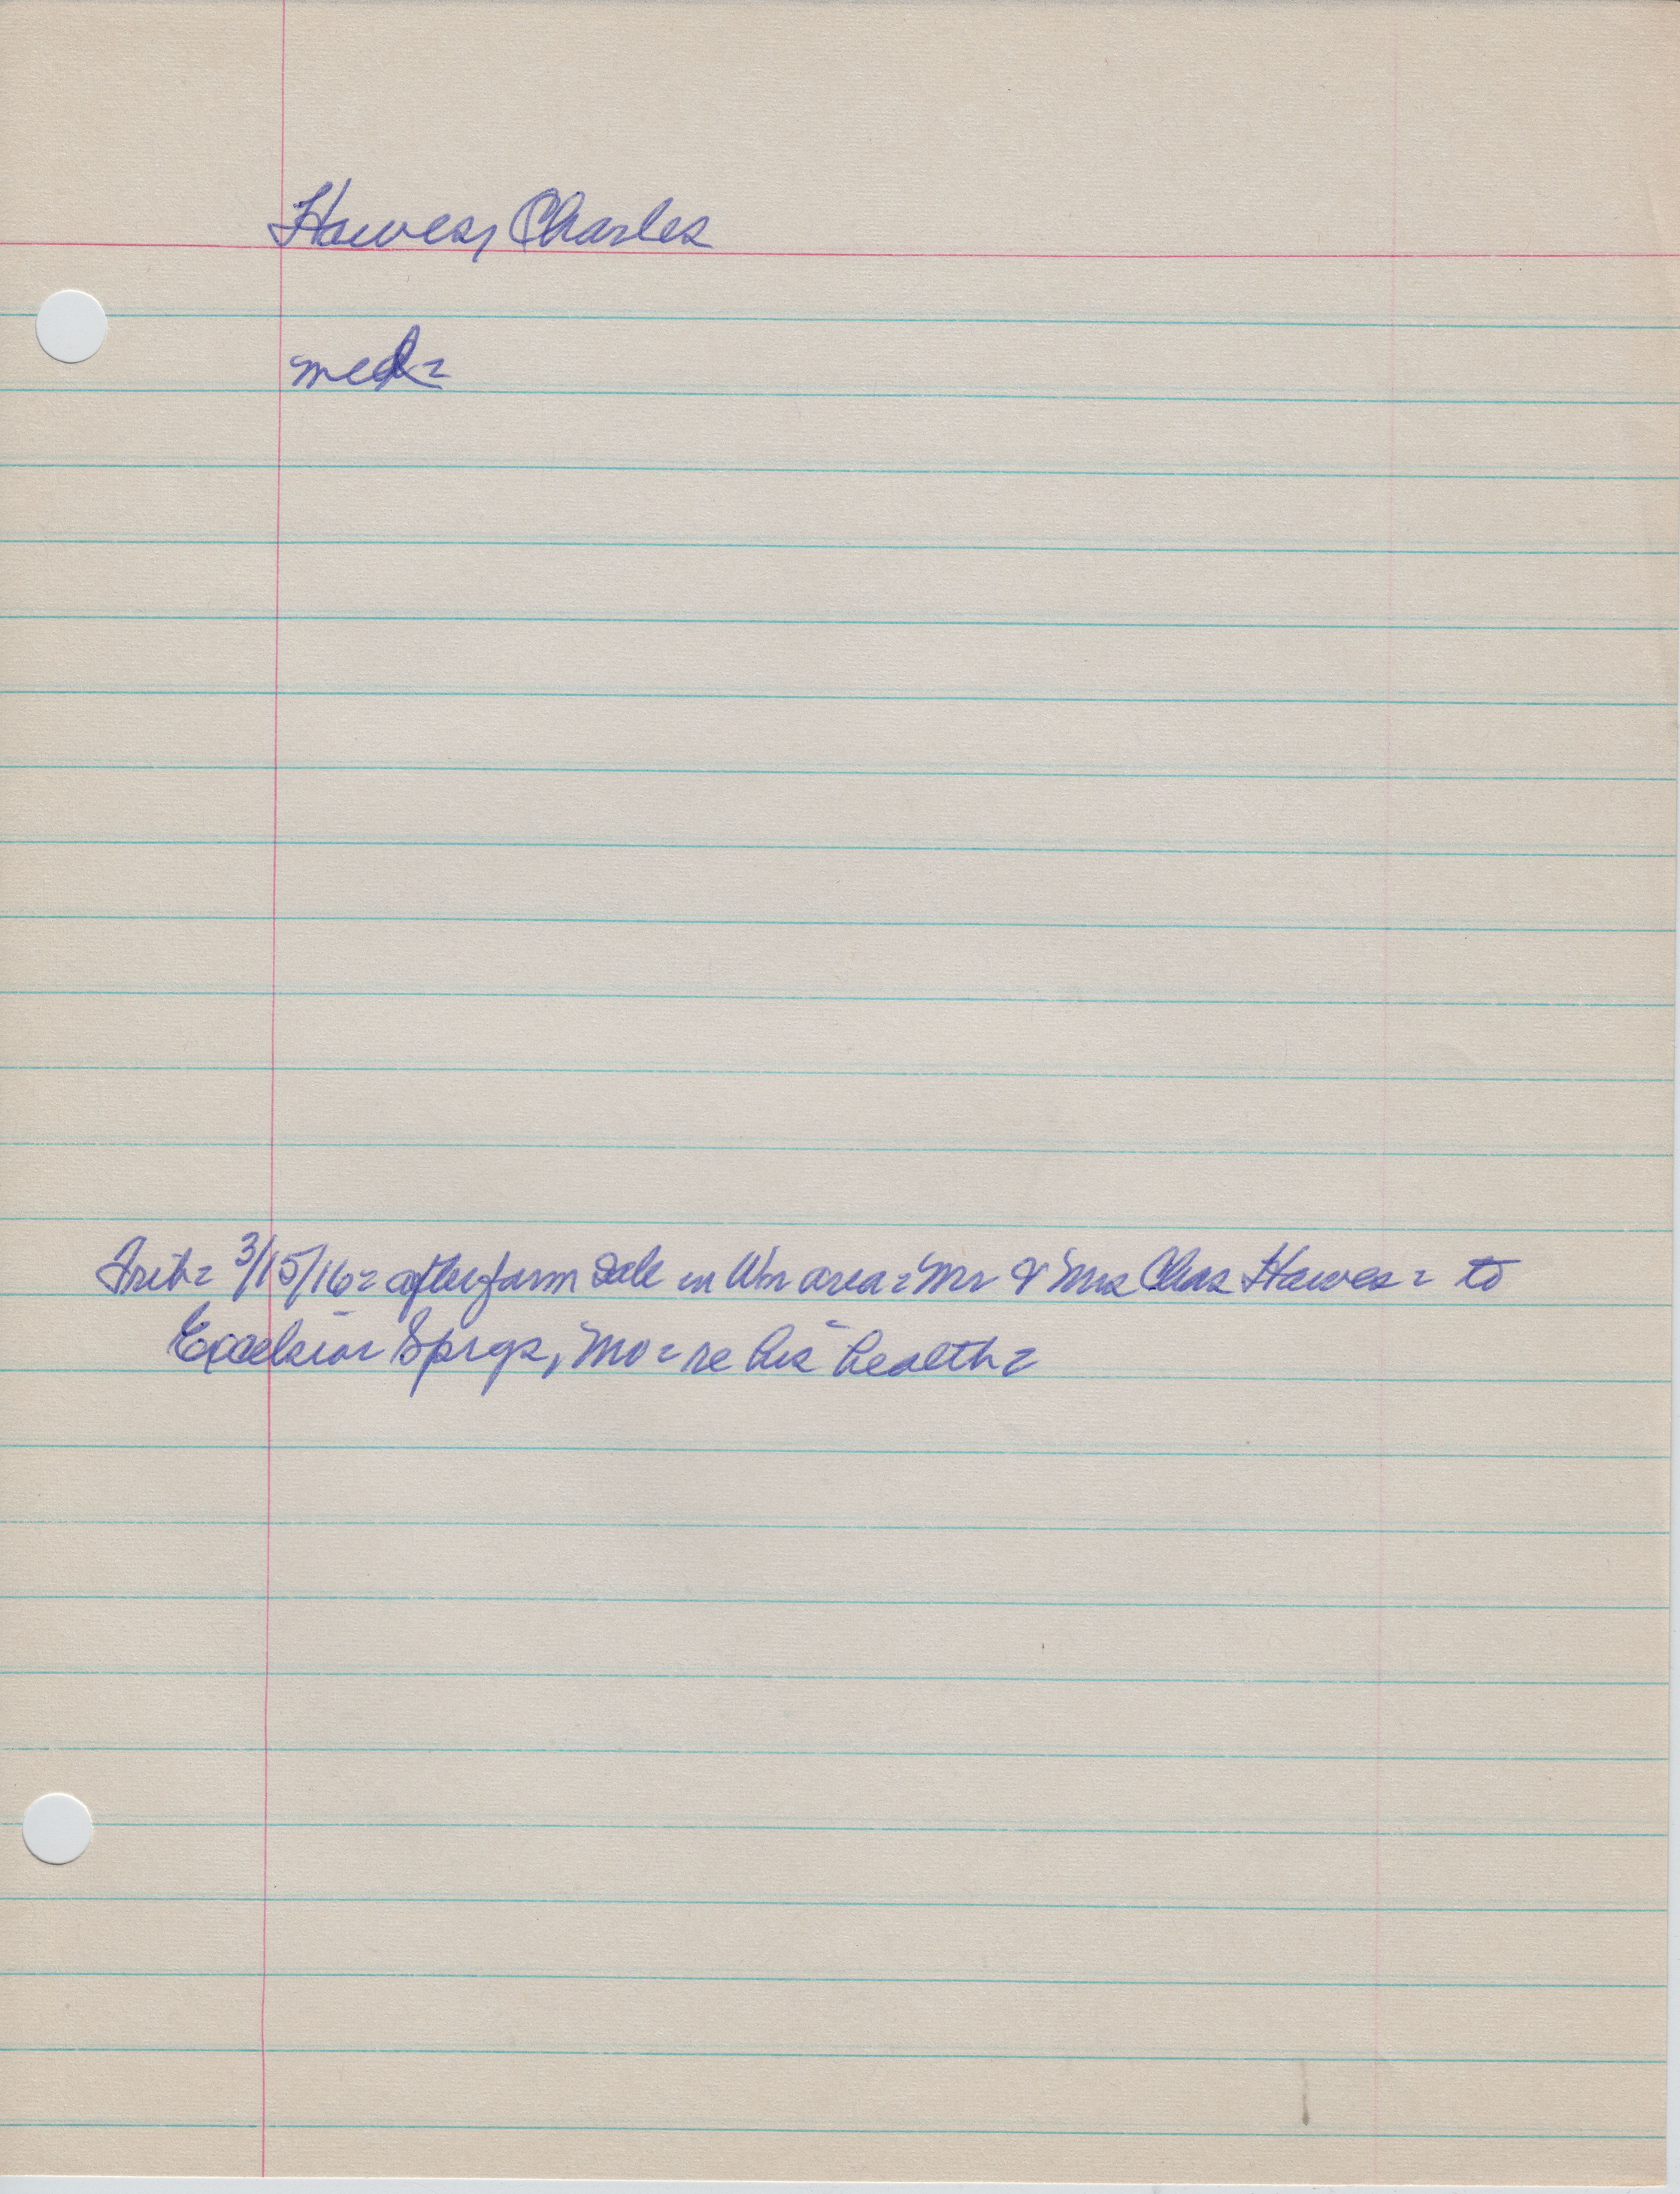 Hawes, Charles
med=
Trib= 3/15/16= after farm sale in Wm area= Mr & Mrs Chas Hawes= to
Excelsior Sprgs, Mo= re his health=